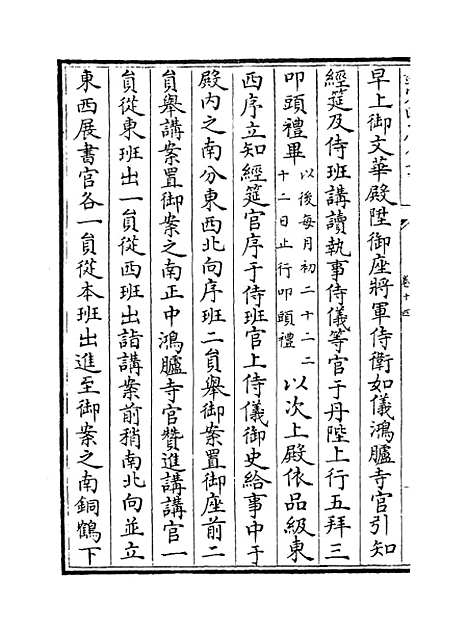 早上御文華殿陞御座將軍侍衛如儀鴻臚寺官引知
經筵及侍班講讀執事侍儀等官于丹陛上行五拜三
叩頭禮畢以後每月初二十二二十二日止行叩頭禮以次上殿依品級東
西序立知經筵官序于侍班官上侍儀御史給事中于
殿内之南分東西北向序班二員舉御案置御座前二
員舉講案置御案之南正中鴻臚寺官贊進講講官一
員從東班出一員從西班出詣講案前稍南北向並立
東西展書官各一員從本班出進至御案之南銅鶴下
卷十四